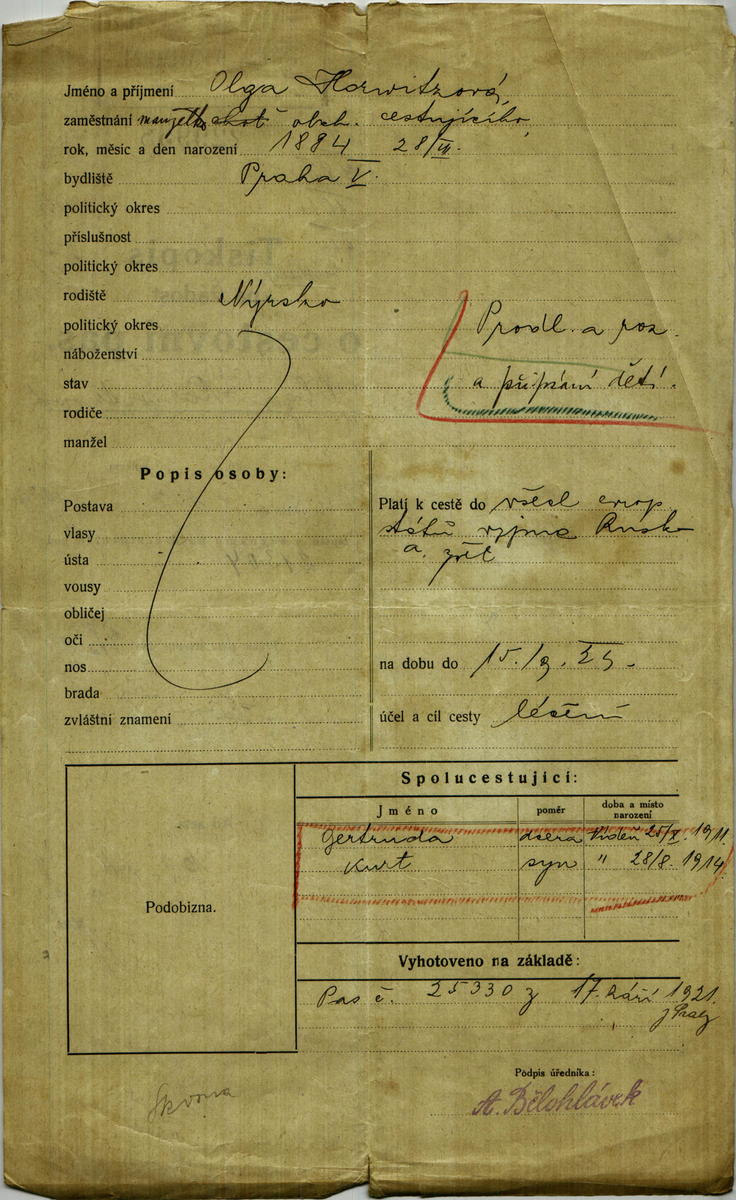 Jméno a příjmení Olga Horwitzová,
zaměstnání manželka obch. cestujícího,
rok, měsíc a den narození 1884 28/VII.
bydliště Praha V.
politický okres
příslušnost
politický okres
rodiště Nýrsko
politický okres
Prodl. a roz.
náboženství
stav
a připsání dětí.
rodiče
manžel
Popis osoby:
Postava
vlasy
ústa
vousy
obličej
oči
nos
brada
zvláštní znamení
Platí k cestě do všech evrop.
států vyjma Ruska
a zpět
na dobu do 15./9. 25.
účel a cíl cesty léčení
Spolucestující:
Jméno poměr doba a místo narození
Gertruda dcera Vídeň 25/V 1911.
Kurt syn " 28/8. 1914
Podobizna.
Vyhotoveno na základě:
Pas č. 25330 z 17. září 1921.
z Prahy
Podpis úředníka:
A. Bělohlávek